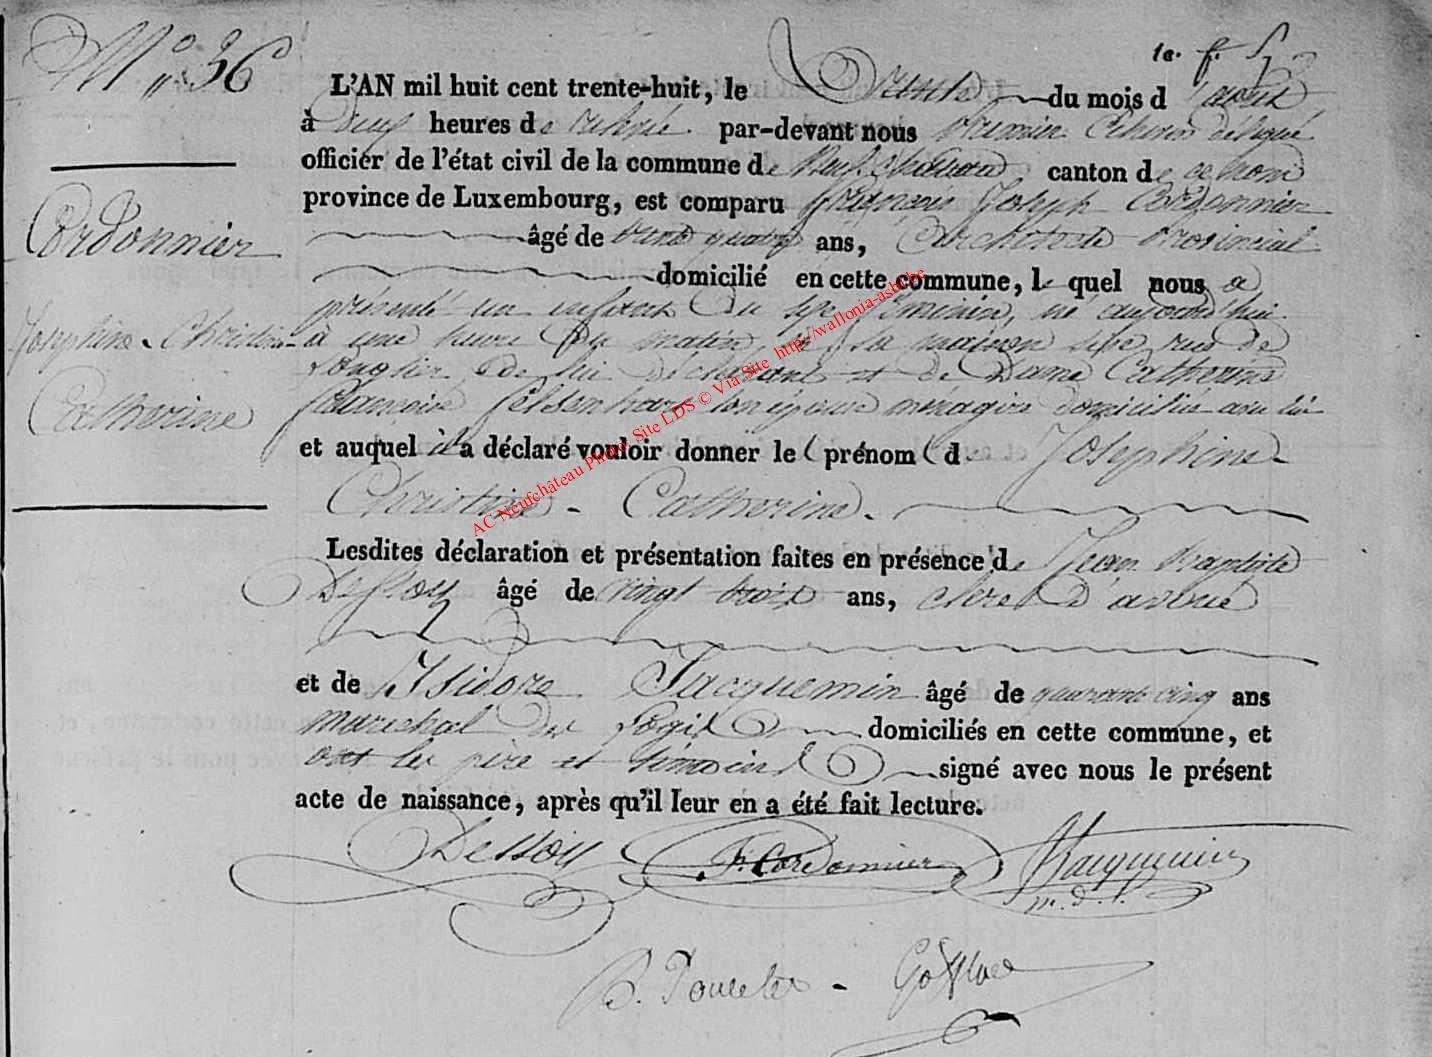 N° 36
L'AN mil huit cent trente-huit, le trente du mois d'avril
à deux heures de relevée par-devant nous premier Echevin délégué
officier de l'état civil de la commune de Neufchateau, canton de ce nom
province de Luxembourg, est comparu François Joseph Cordonnier
âgé de trente quatre ans, Architecte Provincial
domicilié en cette commune, lequel nous a
présenté un enfant du sexe féminin, né aujourd'hui
à une heure du matin, en sa maison sise rue de
Longlier de lui déclarant et de Dame Catherine
son épouse ménagère domiciliée avec lui
et auquel il a déclaré vouloir donner le prénom de Joséphine
Christine - Catherine.
Lesdites déclaration et présentation faites en présence de Jean Baptiste
Dessoy âgé de vingt trois ans, clerc d'avoué
et de Isidore Jacquemin âgé de quarante cinq ans
marechal des Logis domiciliés en cette commune, et
ont les père et témoins signé avec nous le présent
acte de naissance, après qu'il leur en a été fait lecture.
Cordonnier
Joséphine - Christine -
Catherine
Dessoy F. Cordonnier Jacquemin
m.d.l.
AC Neufchâteau Photo Site LDS © Via Site http://wallonia-asbl.be